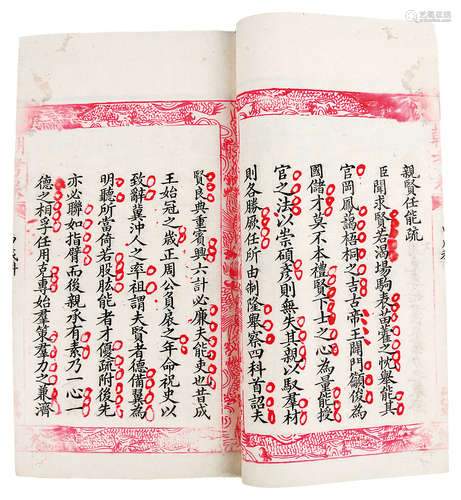 親賢任能疏
臣聞求賢若渴場駒表苗藿之忱舉能其
官岡鳳謁梧桐之吉古帝王開門籲俊為
國儲才莫不本擅賢下士之心為量能授
官之法以崇碩彥則無失其親以馭羣材
則各勝厥任所由制隆舉察四科首認夫
賢良典重賓興六計必廉夫能吏也昔成
王始冠之歲正周公負扆之年命祝史以
致辭冀沖人之率祖謂夫賢者德備翼為
明聽所當倚若股肱能者才優疏附後先
亦必聯如指臂而後親承有素乃一心一
德之相孚任用克專始羣策羣力之兼濟